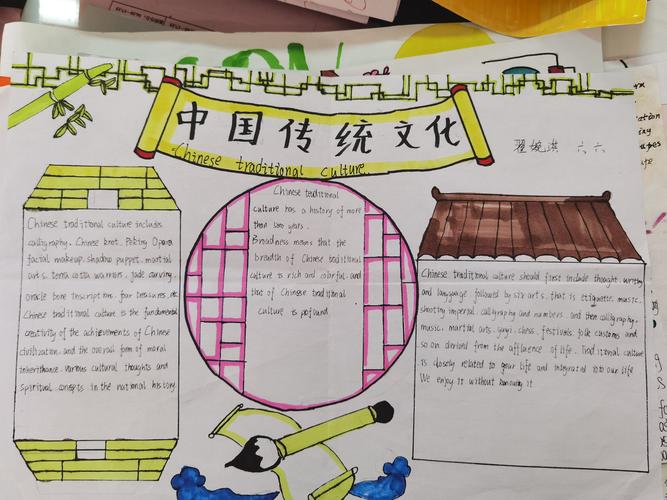 中国传统文化
Chinese traditional culture
六六
Chinese traditional culture includes
calligraphy. Chinese knot. Peking Opera
facial makeup. shadow puppet. martial
arts. terra cotta warriors. jade carving.
oracle bone inscriptions. four tressures. etc
Chinese traditional culture is the fundamental
creativity of the achievements of Chinese
civilization. and the overall form of moral
inheritance. various cultural thoughts and
Spiritual consepts in the national history.
Chinese traditional
culture has a history of more
than years.
Broadness means that the
breadth of Chinese traditional
culture is rich and colorful. and
that of Chinese traditional
culture is profound
Chinese traditional culture should first include thought. writing
and language followed by six arts. that is etiquette. music.
shooting imperial. calligraphy and numbers. and then calligraphy.
music. martial arts. chess. festivals. folk customs and
so on derived from the affluence of life. Traditional culture
is closely related to your life and integrated into our life
We enjoy it without it